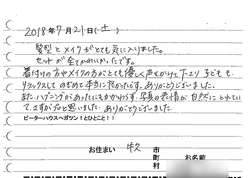 2018年7月21日(土)
髪型とメイクがとても気に入りました。
セットが全てかわいかったです。
着付けの方やメイクの方がとても優しく声をかけて下さり子どもも
リラックスしてのぞめて本当に良かったです。ありがとうございました。
また、ハプニングがあったにもかかわらず、写真の表情が自然にとれていて、
さすがプロと思いました。ありがとうございました。
ピーターハウスへガツン!とひとこと!!
お住まい 牛久 市 町 村 お名前